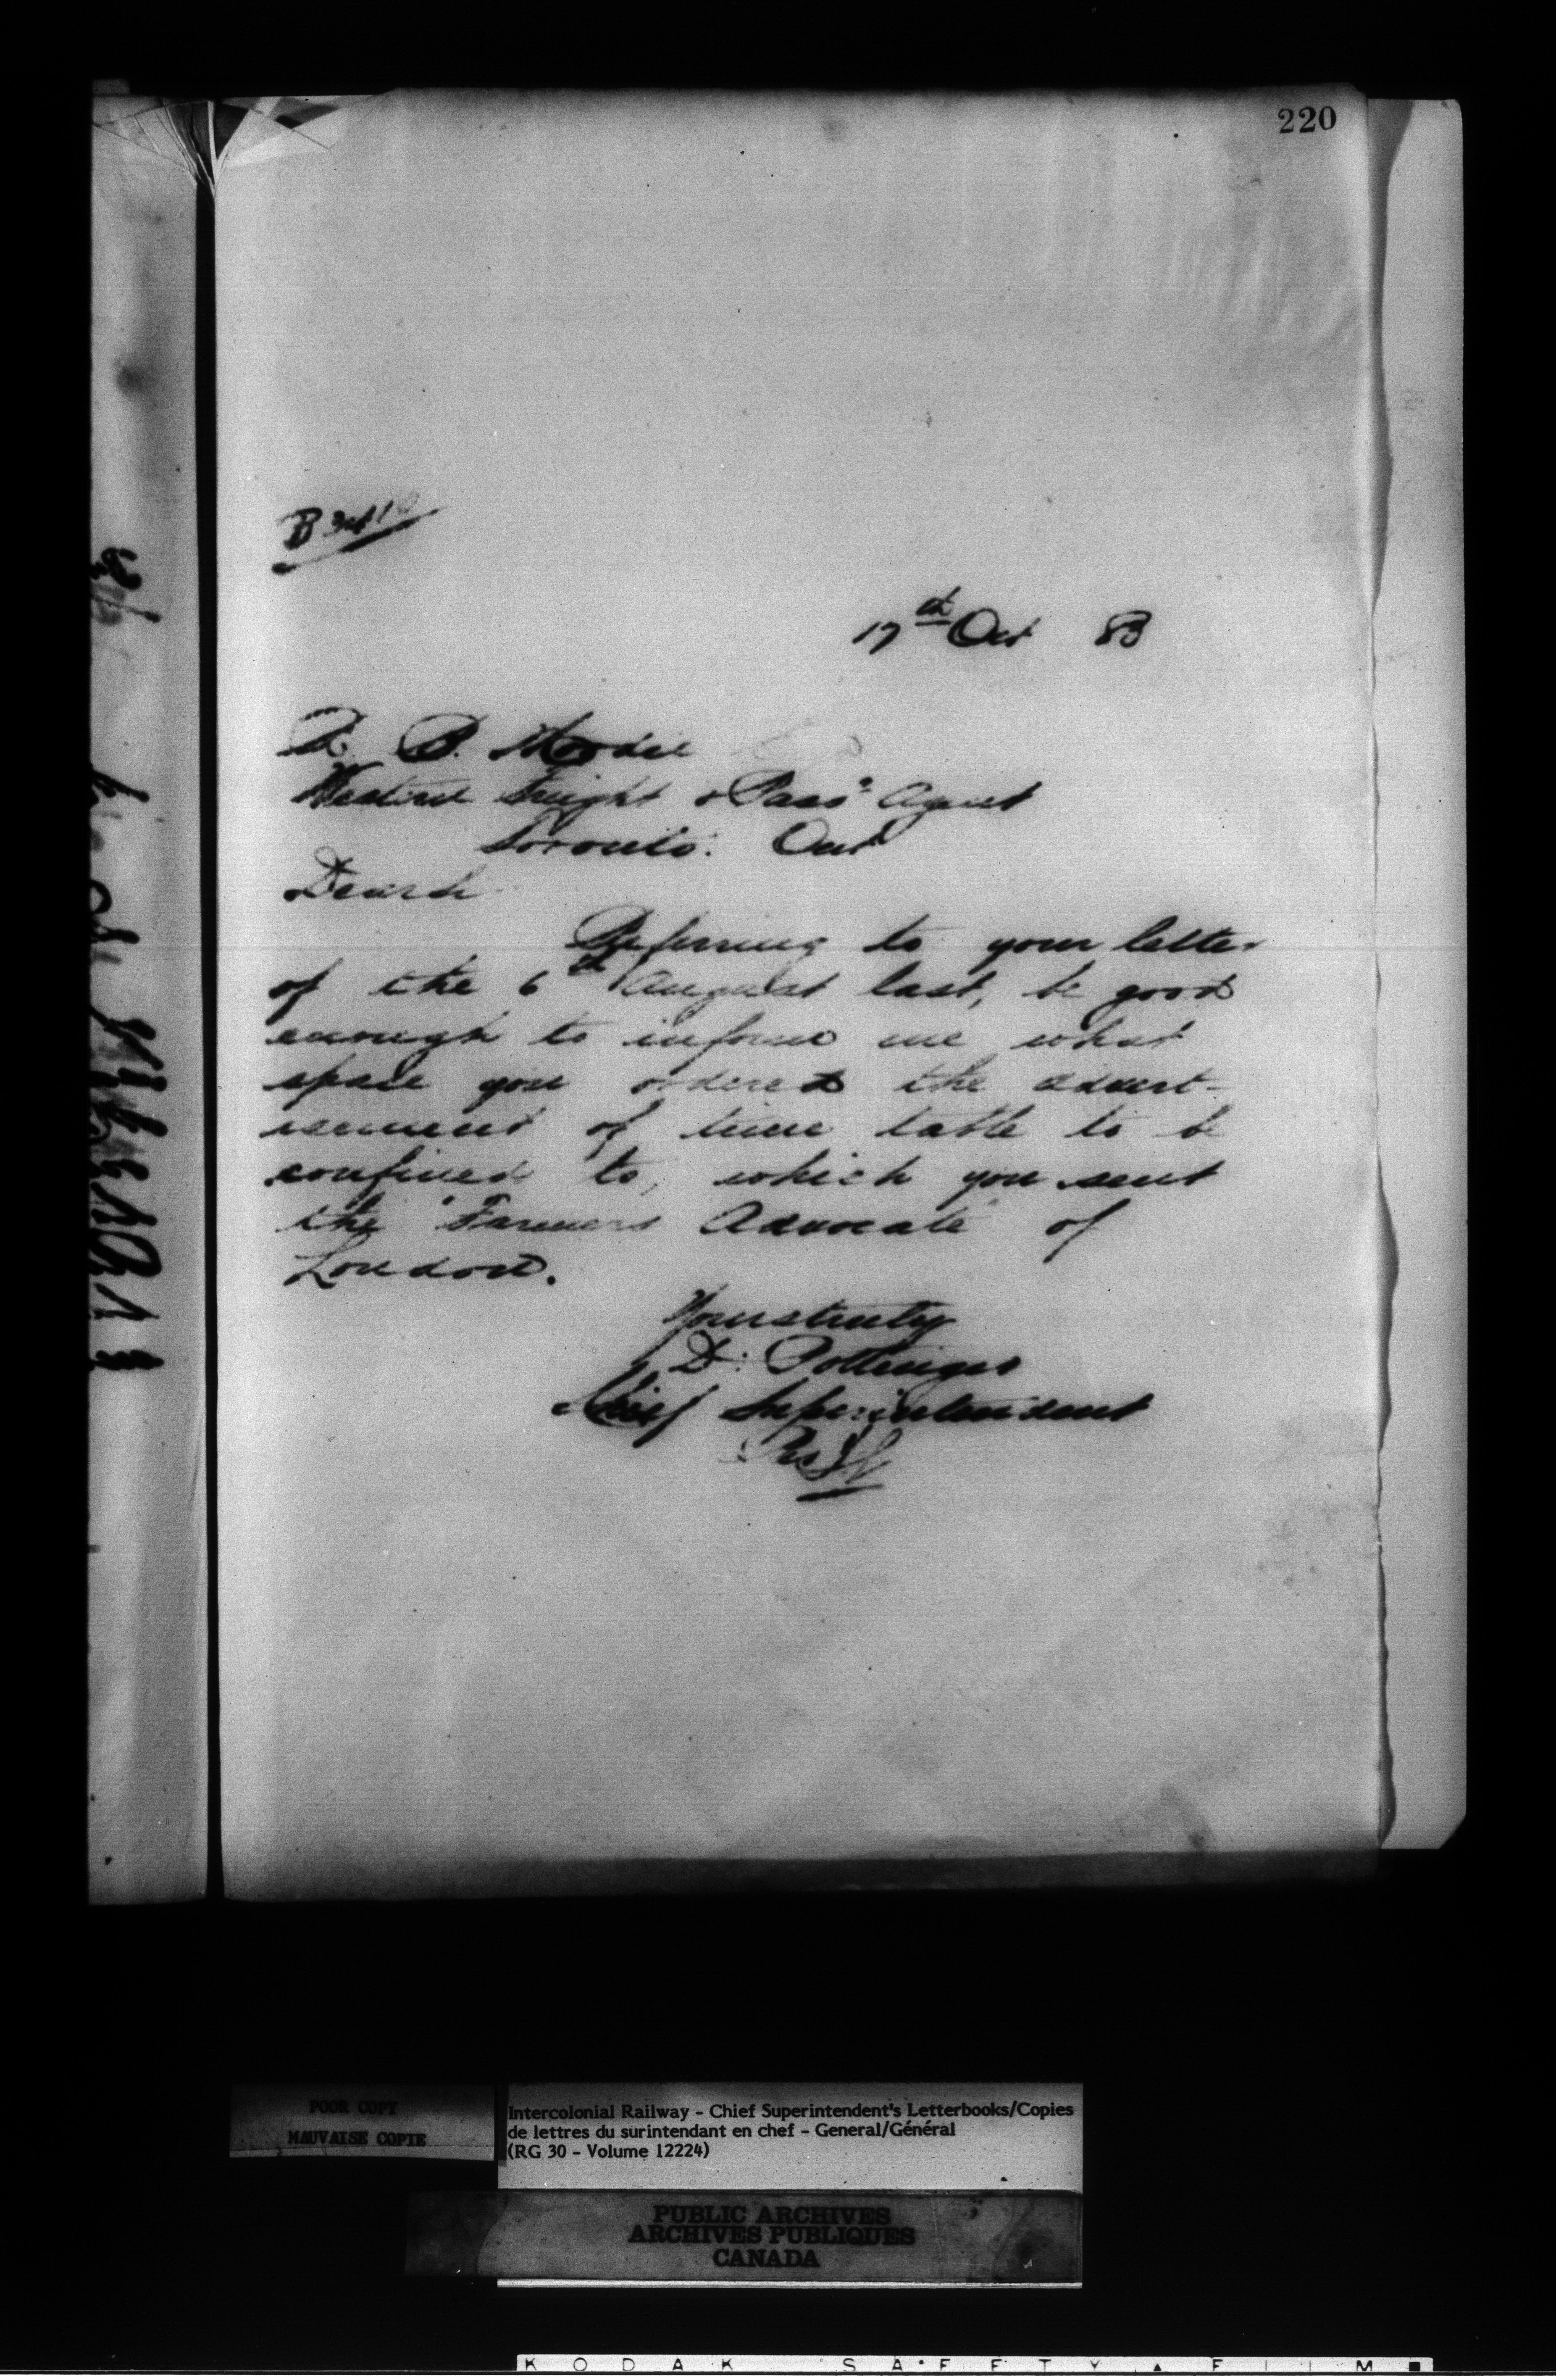 220
B 3410
17th Oct 83
R. B. Moodie
Western Freight & Pass. Agent
Toronto. Ont
Dear Sir
Referring to your letter
of the 6th August last, be good
enough to inform me what
space you ordered the advert-
isement of time table to be
confined to, which you sent
the "Farmers Advocate" of
London.
Yours truly
D. Pottinger
Chief Superintendent
POOR COPY
MAUVAISE COPIE
Intercolonial Railway - Chief Superintendent's Letterbooks/Copies
de lettres du surintendant en chef - General/Général
(RG 30 - Volume 12224)
PUBLIC ARCHIVES
ARCHIVES PUBLIQUES
CANADA
KODAK SAFETY FILM